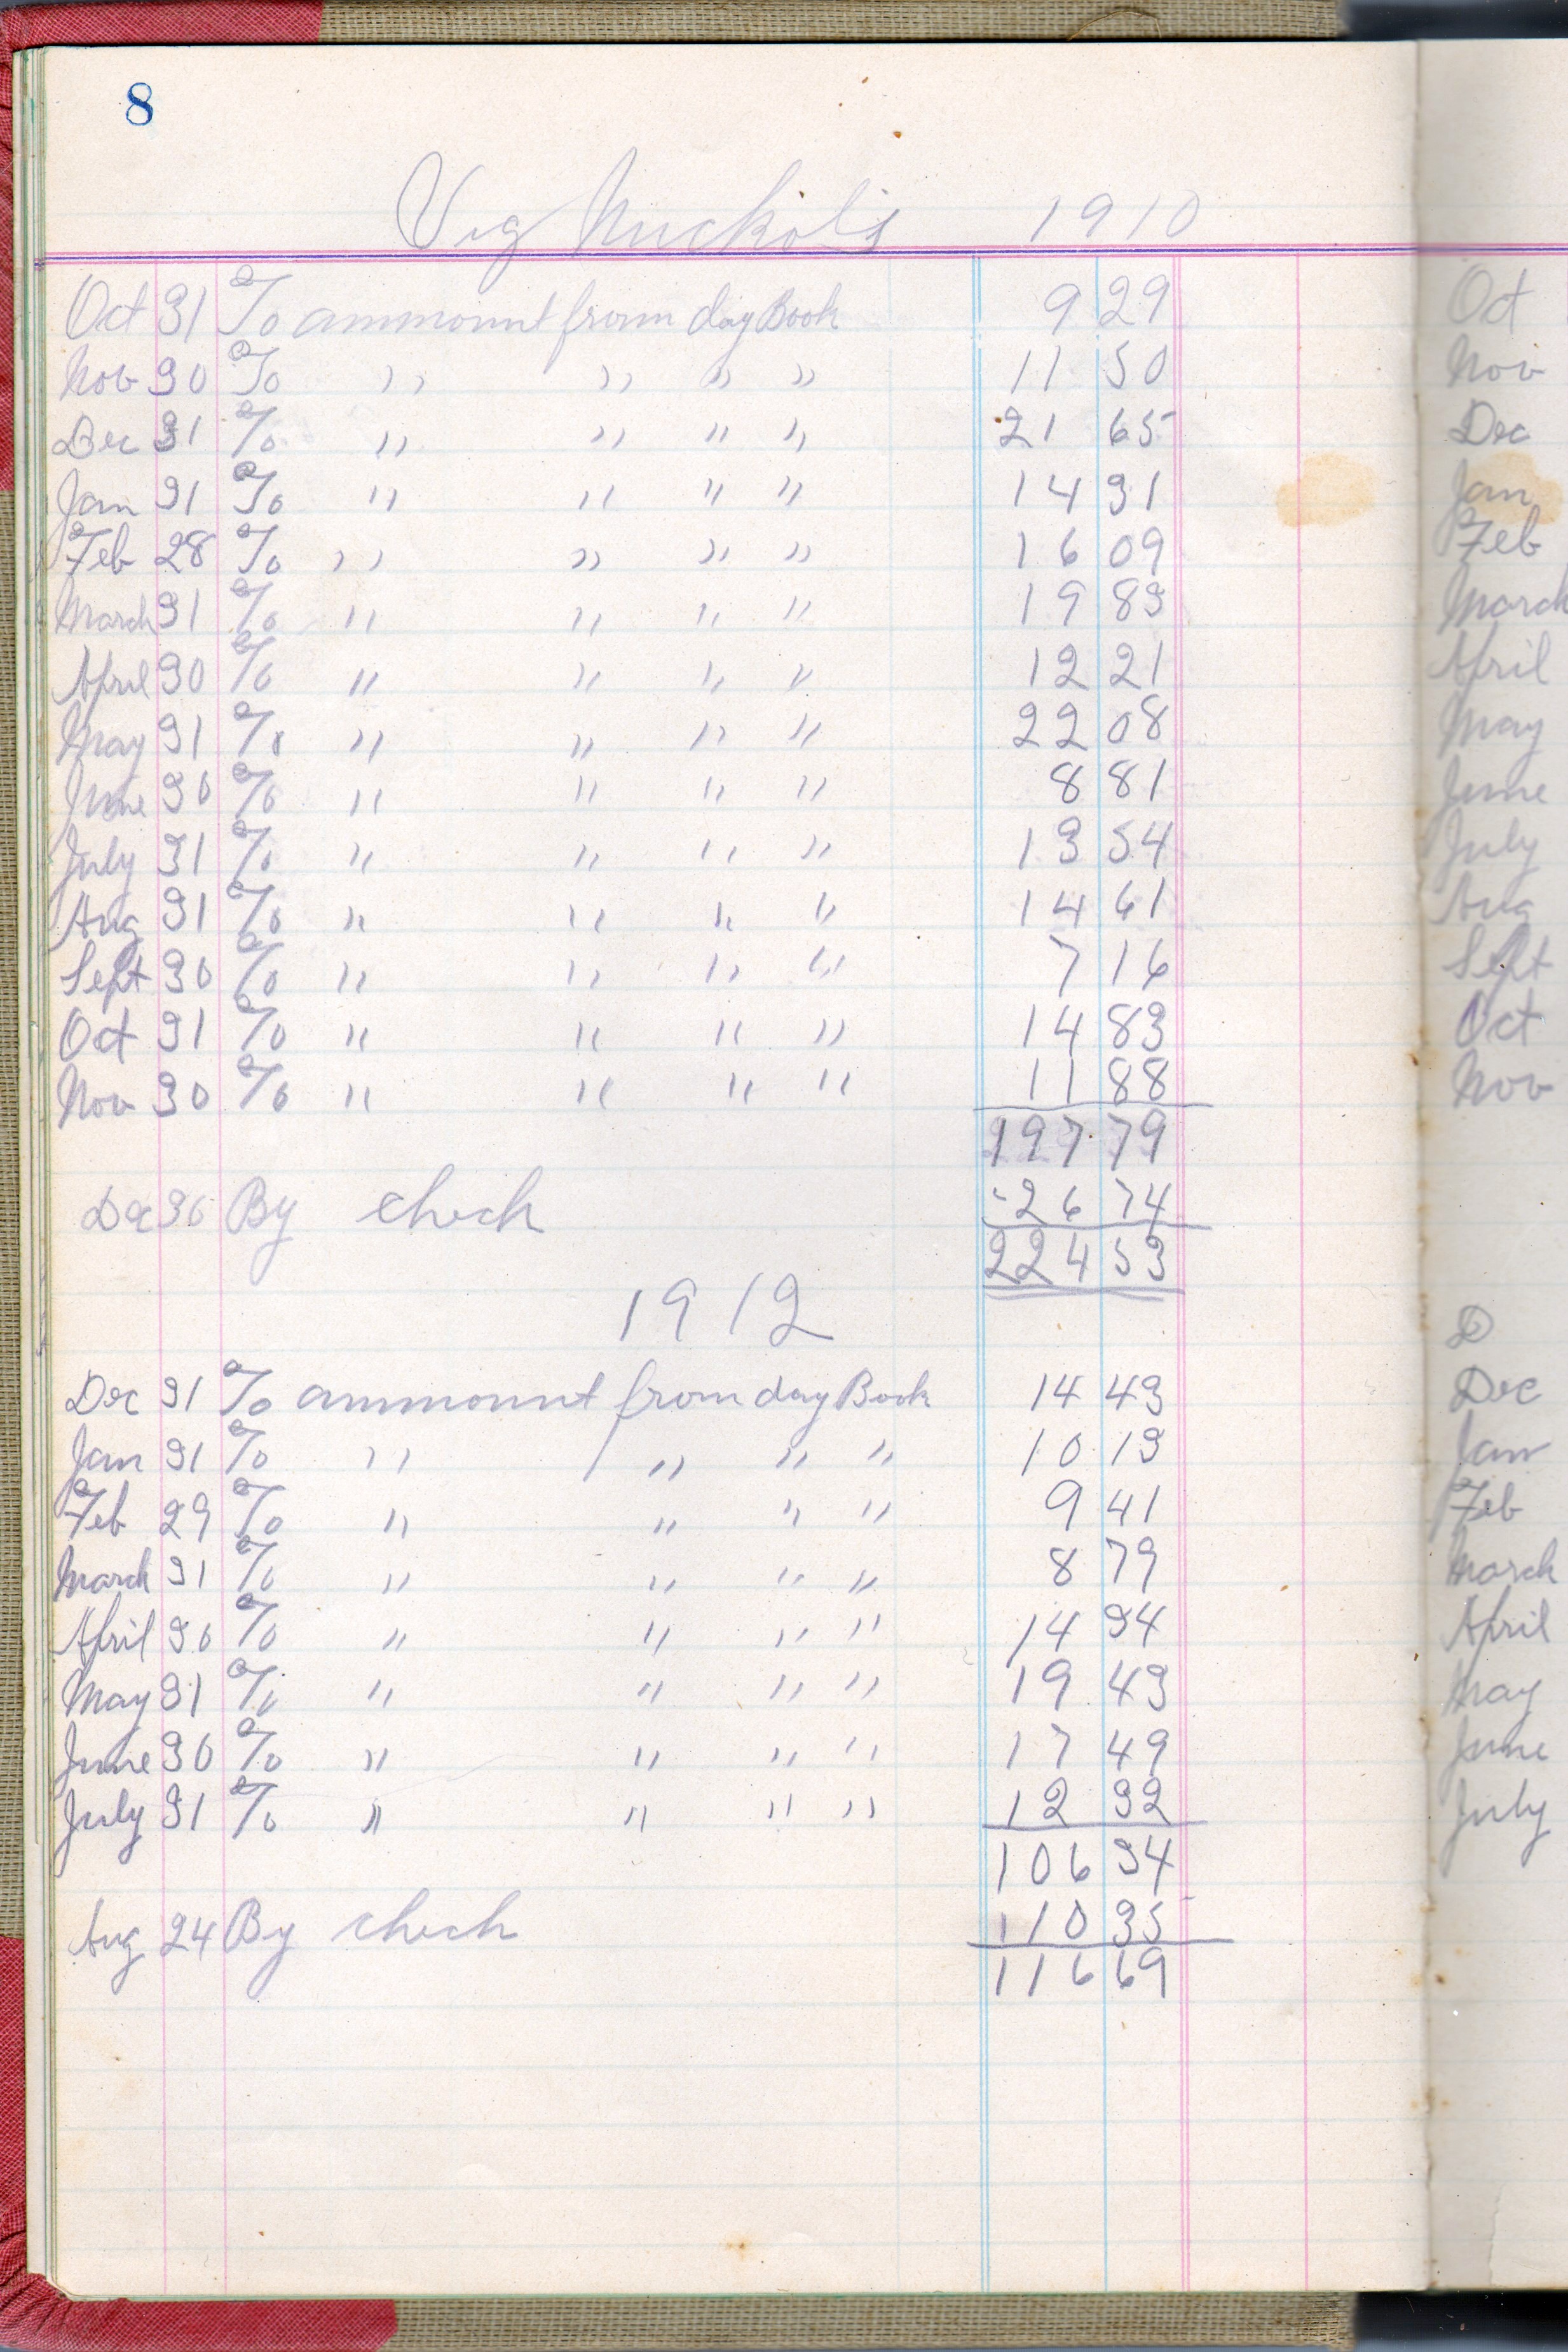 8
Vig Nuckols 1910
Oct 31 To ammount from day Book 9 29
Nov 30 To " " " " 11 50
Dec 31 To " " " " 21 65
Jan 31 To " " " " 14 31
Feb 28 To " " " " 16 09
March 31 To " " " " 19 83
April 30 To " " " " 12 21
May 31 To " " " " 22 08
June 30 To " " " " 8 81
July 31 To " " " " 13 54
Aug 31 To " " " " 14 61
Sept 30 To " " " " 7 16
Oct 31 To " " " " 14 83
Nov 30 To " " " " 11 88
197 79
Dec 30 By check 26 74
224 53
1912
Dec 31 To ammount from day Book 14 43
Jan 31 To " " " " 10 13
Feb 29 To " " " " 9 41
March 31 To " " " " 8 79
April 30 To " " " " 14 34
May 31 To " " " " 19 43
June 30 To " " " " 17 49
July 31 To " " " " 12 32
106 34
Aug 24 By check 110 35
116 69
Oct
Nov
Dec
Jan
Feb
March
April
May
June
July
Aug
Sept
Oct
Nov
D
Dec
Jan
Feb
March
April
May
June
July